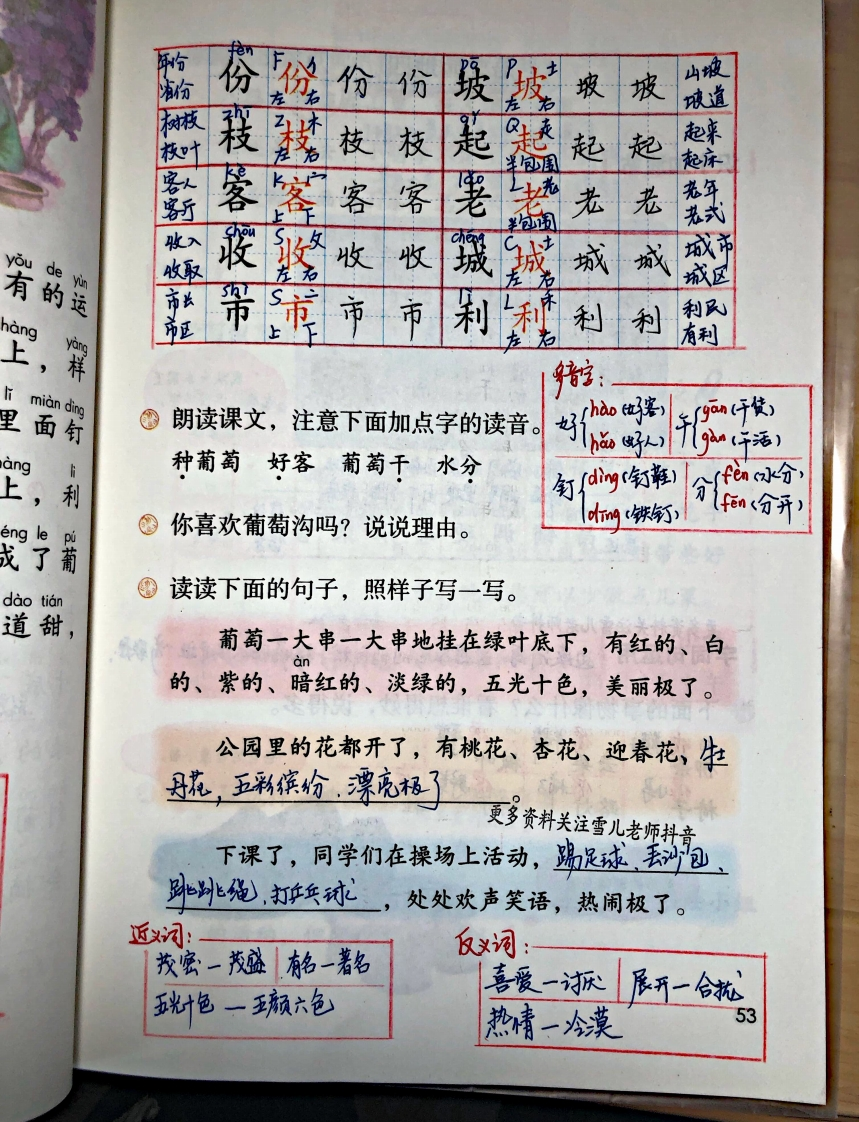 yǒu de yùn
有的运
hàng yàng
上，样
lǐ miàn dìng
里面钉
hàng lì
上，利
éng le pú
成了葡
dào tián
道甜，
年份 省份 fèn 份 F 份 亻 左右 份 份 pō 坡 P 坡 土 左右 坡 坡 山坡 坡道
树枝 枝叶 zhī 枝 Z 枝 木 左右 枝 枝 qǐ 起 Q 起 走 半包围 起 起 起来 起床
客人 客厅 kè 客 K 客 宀 上下 客 客 lǎo 老 L 老 老 半包围 老 老 老年 老式
收入 收取 shōu 收 S 收 攵 左右 收 收 chéng 城 C 城 土 左右 城 城 城市 城区
市长 市区 shì 市 S 市 亠 上下 市 市 lì 利 L 利 禾 左右 利 利 利民 有利
多音字：
好 hào（好客） hǎo（好人） 干 gān（干货） gàn（干活）
钉 dìng（钉鞋） dīng（铁钉） 分 fèn（水分） fēn（分开）
朗读课文，注意下面加点字的读音。
种葡萄 好客 葡萄干 水分
你喜欢葡萄沟吗？说说理由。
读读下面的句子，照样子写一写。
葡萄一大串一大串地挂在绿叶底下，有红的、白
àn
的、紫的、暗红的、淡绿的，五光十色，美丽极了。
公园里的花都开了，有桃花、杏花、迎春花、牡
丹花，五彩缤纷，漂亮极了。
更多资料关注雪儿老师抖音
下课了，同学们在操场上活动，踢足球、丢沙包、
跳跳绳、打乒乓球，处处欢声笑语，热闹极了。
近义词：
茂密—茂盛 有名—著名
五光十色—五颜六色
反义词：
喜爱—讨厌 展开—合拢
热情—冷漠
53